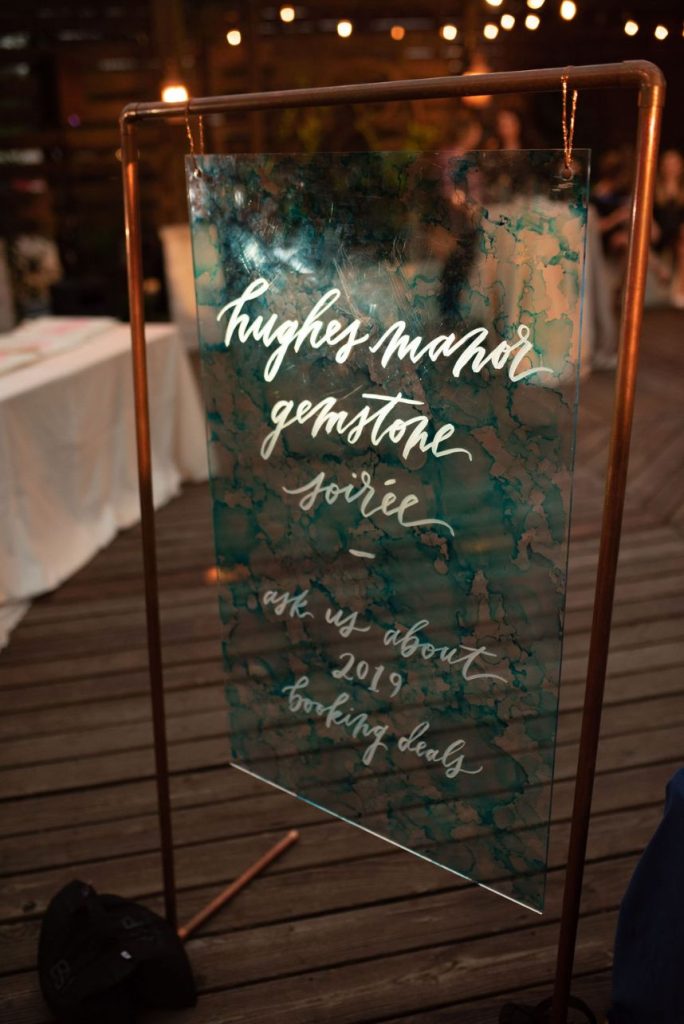 hughes manor
gemstone
soirée
–
ask us about
2019
booking deals